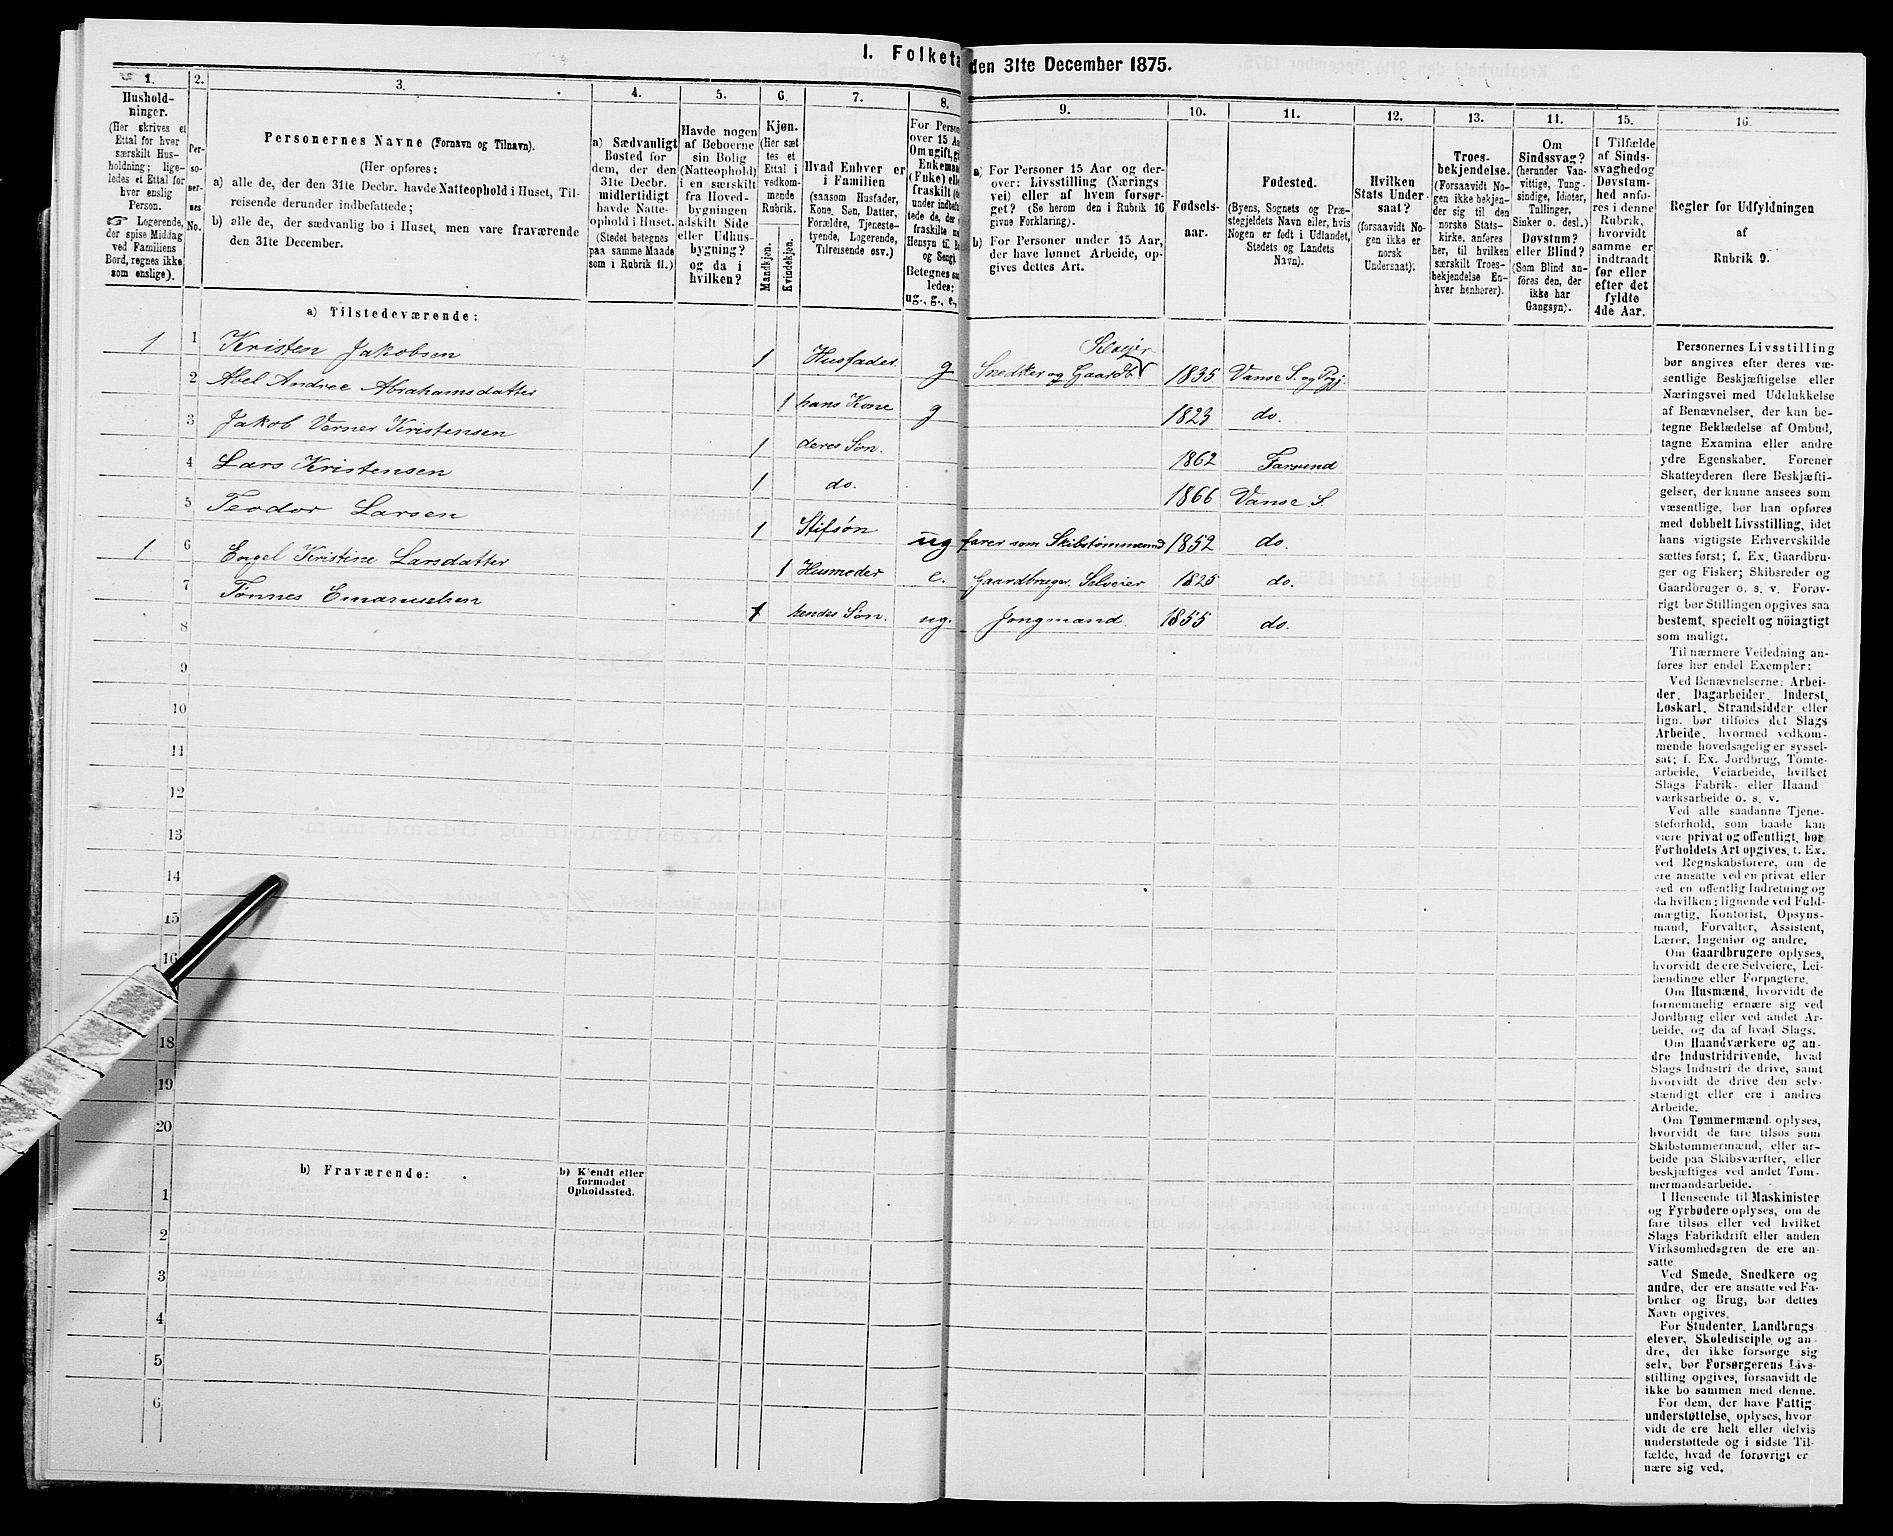 I. Folketa
den 31te December 1875.
1.
2.
3.
4.
5.
6.
7.
8.
9.
10.
11.
12.
13.
11.
15.
16.
Hushold-
ninger.
(Her skrives et
Ettal for hver
særskilt Hus-
holdning; lige-
ledes et Ettal for
hver enslig
Person.
☞ Logerende,
der spise Middag
ved Familiens
Bord, regnes ikke
som enslige).
Per-
so-
ner-
nes
No.
Personernes Navne (Fornavn og Tilnavn).
(Her opføres:
a) alle de, der den 31te Decbr. havde Natteophold i Huset, Til-
reisende derunder indbefattede;
b) alle de, der sædvanlig bo i Huset, men vare fraværende
den 31te December.
a) Sædvanligt
Bosted for
dem, der den
31te Decbr.
midlertidigt
havde Natte-
ophold i Huset.
(Stedet betegnes
paa samme Maade
som i Rubrik 11.)
Havde nogen
af Beboerne
sin Bolig
(Natteophold)
i en særskilt
fra Hoved-
bygningen
adskilt Side
eller Udhus-
bygning?
og da i
hvilken?
Kjøn.
(Her sæt
tes et
Ettal i
vedkom-
mende
Rubrik.
Mandkjøn.
Kvindekjøn.
Hvad Enhver er
i Familien
(saasom Husfader,
Kone, Søn, Datter,
Forældre, Tjeneste-
tyende, Logerende,
Tilreisende osv.)
For Person
over 15 Aa
Om ugift, gi
Enkeman
(Enke) elle
fraskilt (
under indbef
tede de, der
fraskilte m
Hensyn til B
og Seng).
Betegnes saa
ledes:
ug., g., e.,
a) For Personer 15 Aar og der-
over: Livsstilling (Nærings
vei) eller af hvem forsør-
get? (Se herom den i Rubrik 16
givne Forklaring).
b) For Personer under 15 Aar,
der have lønnet Arbeide, op-
gives dettes Art.
Fødsels-
aar.
Fødested.
(Byens, Sognets og Præ-
stegjeldets Navn eller, hvis
Nogen er født i Udlandet,
Stedets og Landets
Navn).
Hvilken
Stats Under-
saat?
(forsaavidt No-
gen ikke er
norsk
Undersaat).
Troes-
bekjendelse.
(Forsaavidt No-
gen ikke bekjen-
der sig til den
norske Stats-
kirke, anføres
her, til hvilken
særskilt Troes-
bekjendelse En-
hver henhører).
Om
Sindssvag?
(herunder Van-
vittige, Tung-
sindige, Idioter,
Tullinger,
Sinker o. desl.)
Døvstum?
eller Blind?
(Som Blind an-
føres den, der
ikke har
Gangsyn).
I Tilfælde
af Sinds-
svaghedog
Døvstum-
hed anfø-
res i denne
Rubrik,
hvorvidt
samme er
indtraadt
før eller
efter det
fyldte
4de Aar.
Regler for Udfyldningen
af
Rubrik 9.
a) Tilstedeværende:
1 1 Kristen Jakobsen 1 Husfader g Snedker og Gaardb Selveier 1835 Vanse S. og Pgj.
2 Abel Andree Abrahamsdatter 1 hans Kone g 1823 do.
3 Jakob Verner Kristensen 1 deres Søn. 1862 Farsund
4 Lars Kristensen 1 do. 1866 Vanse S.
5 Teodor Larsen 1 Stifsøn ug farer som Skibstømmemd 1852 do.
1 6 Engel Kristine Larsdatter 1 Husmoder e. Gaardbruger, Selveier 1825 do.
7 Tønnes Emanuelsen 1 hendes Søn. ug. Jongmand. 1855 do.
8
9
10
11
12
13
14
15
16
18
19
20
b) Fraværende:
b) Kjendt eller
formodet
Opholdssted.
1
2
3
4
5
6
Personernes Livsstilling
bør angives efter deres væ-
sentlige Beskjæftigelse eller
Næringsvei med Udelukkelse
af Benævnelser, der kun be-
tegne Beklædelse af Ombud,
tagne Examina eller andre
ydre Egenskaber. Forener
Skatteyderen flere Beskjæfti-
gelser, der kunne ansees som
væsentlige, bør han opføres
med dobbelt Livsstilling, idet
hans vigtigste Erhvervskilde
sættes først; f. Ex. Gaardbru-
ger og Fisker; Skibsreder og
Gaardbruger o. s. v. Forøv-
rigt bør Stillingen opgives saa
bestemt, specielt og nøiagtigt
som muligt.
Til nærmere Veiledning an-
føres her endel Exempler:
Ved Benævnelserne: Arbei-
der, Dagarbeider, Inderst,
Løskarl, Strandsidder eller
lign. bør tilføies det Slags
Arbeide, hvormed vedkom-
mende hovedsagelig er syssel-
sat; f. Ex. Jordbrug, Tømte-
arbeide, Veiarbeide, hvilket
Slags Fabrik- eller Haand
værksarbeide o. s. v.
Ved alle saadanne Tjene-
steforhold, som baade kan
være privat og offentligt, bør
Forholdets Art opgives, f. Ex.
ved Regnskabsførere, om de
ere ansatte ved en privat eller
ved en offentlig Indretning og
da hvilken; lignende ved Fuld-
mægtig, Kontorist, Opsyns-
mand, Forvalter, Assistent,
Lærer, Ingeniør og andre.
Om Gaardbrugere oplyses,
hvorvidt de ere Selveiere, Lei-
lændinge eller Forpagtere.
Om Husmænd, hvorvidt de
fornemmelig ernære sig ved
Jordbrug eller ved andet Ar-
beide, og da af hvad Slags.
Om Haandværkere og an-
dre Industridrivende, hvad
Slags Industri de drive, samt
hvorvidt de drive den selv-
stændigt eller ere i andres
Arbeide.
Om Tømmermænd oplyses,
hvorvidt de fare tilsøs som
Skibstømmermænd, eller ar-
beide paa Skibsværfter, eller
beskjæftiges ved andet Tøm-
mermandsarbeide.
I Henseende til Maskinister
og Fyrbødere oplyses, om de
fare tilsøs eller ved hvilket
Slags Fabrikdrift eller anden
Virksomhedsgren de ere an-
satte.
Ved Smede, Snedkere og
andre, der ere ansatte ved Fa-
briker og Brug, bør dettes
Navn opgives.
For Studenter, Landbrugs
elever, Skoledisciple og an-
dre, der ikke forsørge sig
selv, bør Forsørgerens Livs-
stilling opgives, forsaavidt de
ikke bo sammen med denne.
For dem, der have Fattig
understøttelse, oplyses, hvor
vidt de ere helt eller delvis
understøttede og i sidste Til-
fælde, hvad de forøvrigt er
nære sig ved.